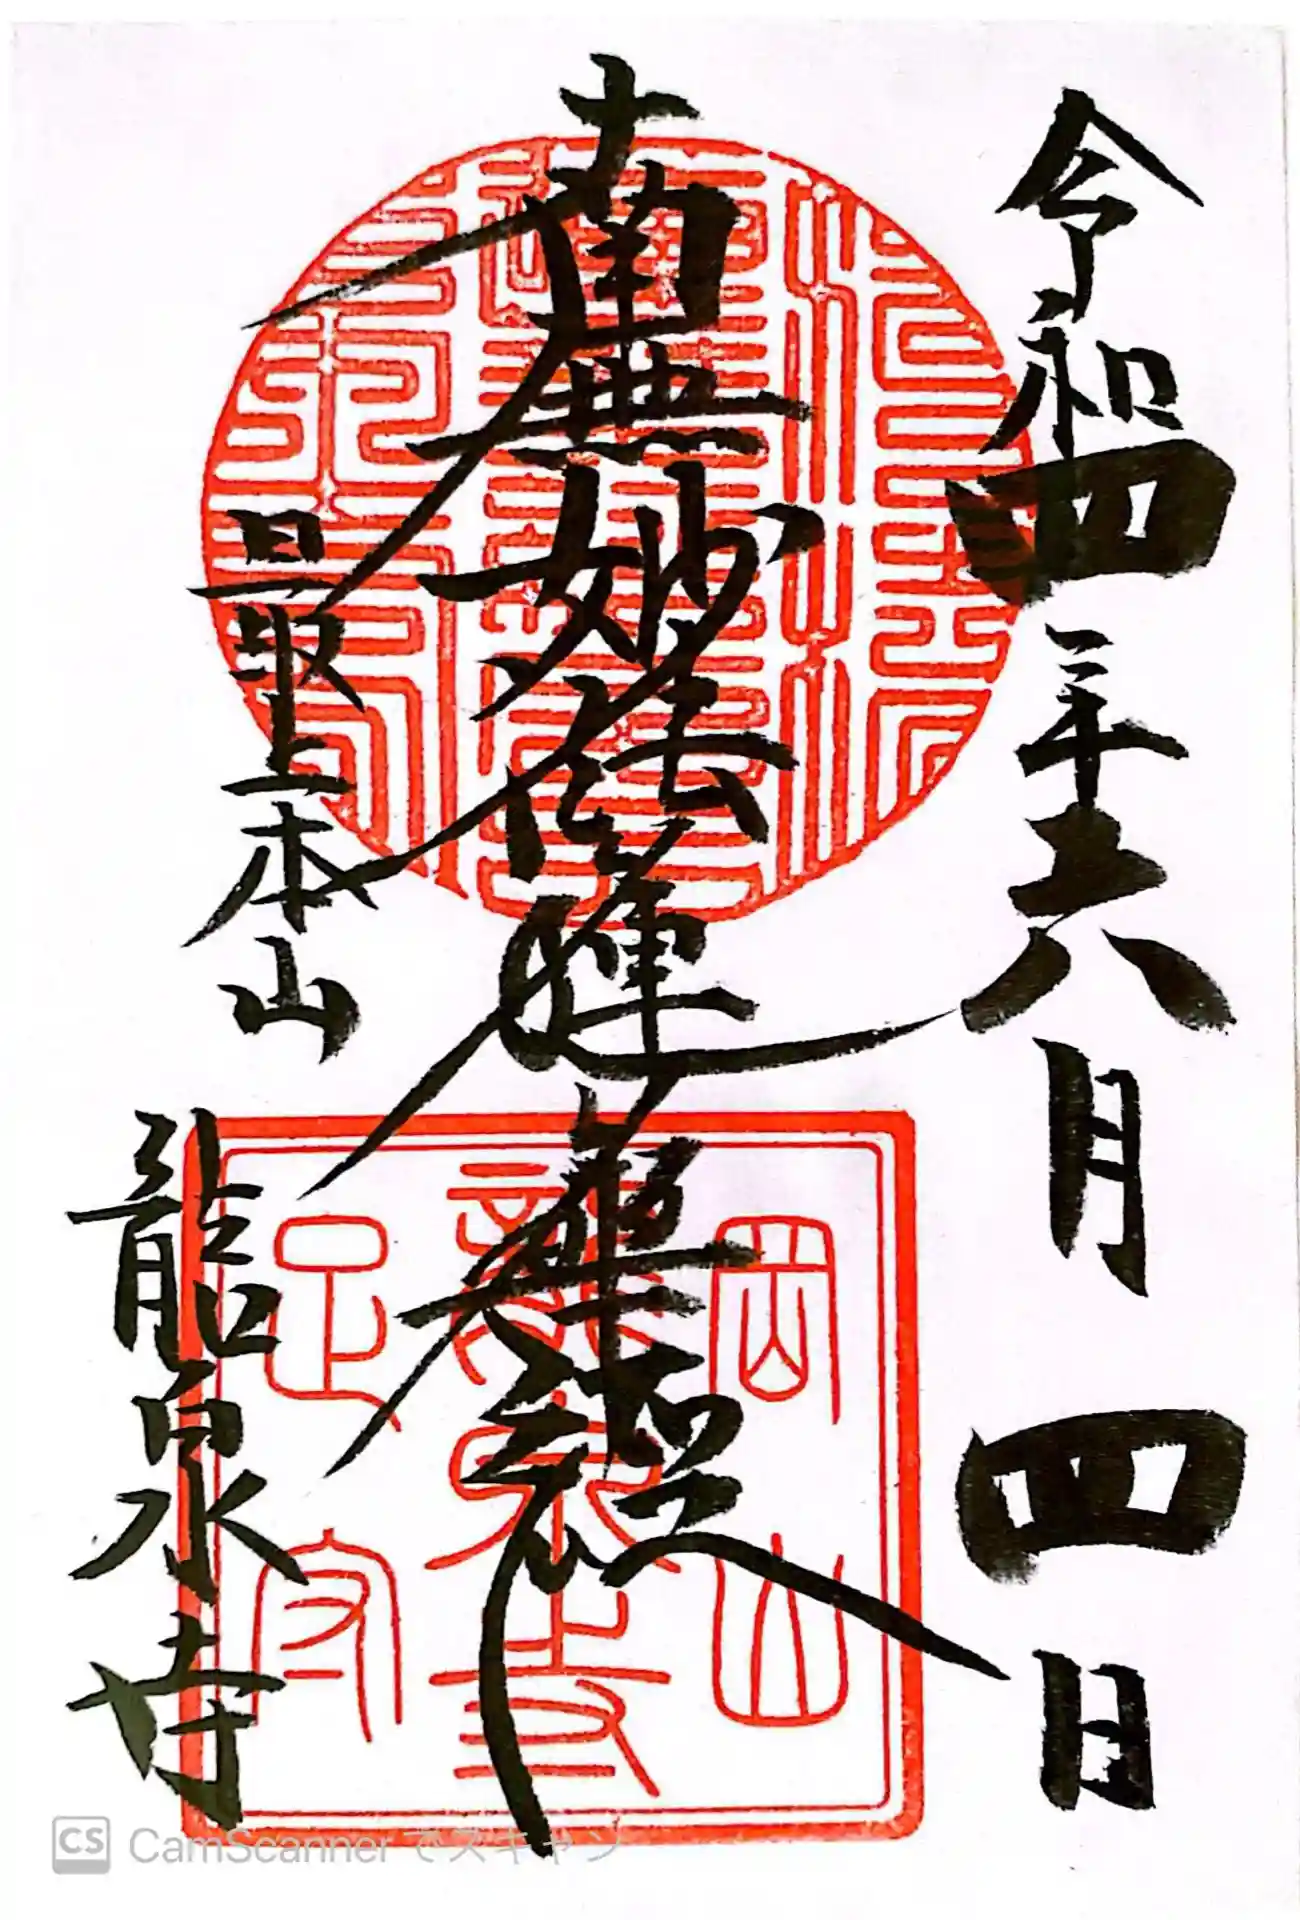 令和四年六月四日
南無妙法蓮華経
最上本山
龍泉寺
岡山
龍泉寺
CS CamScanner でスキャン